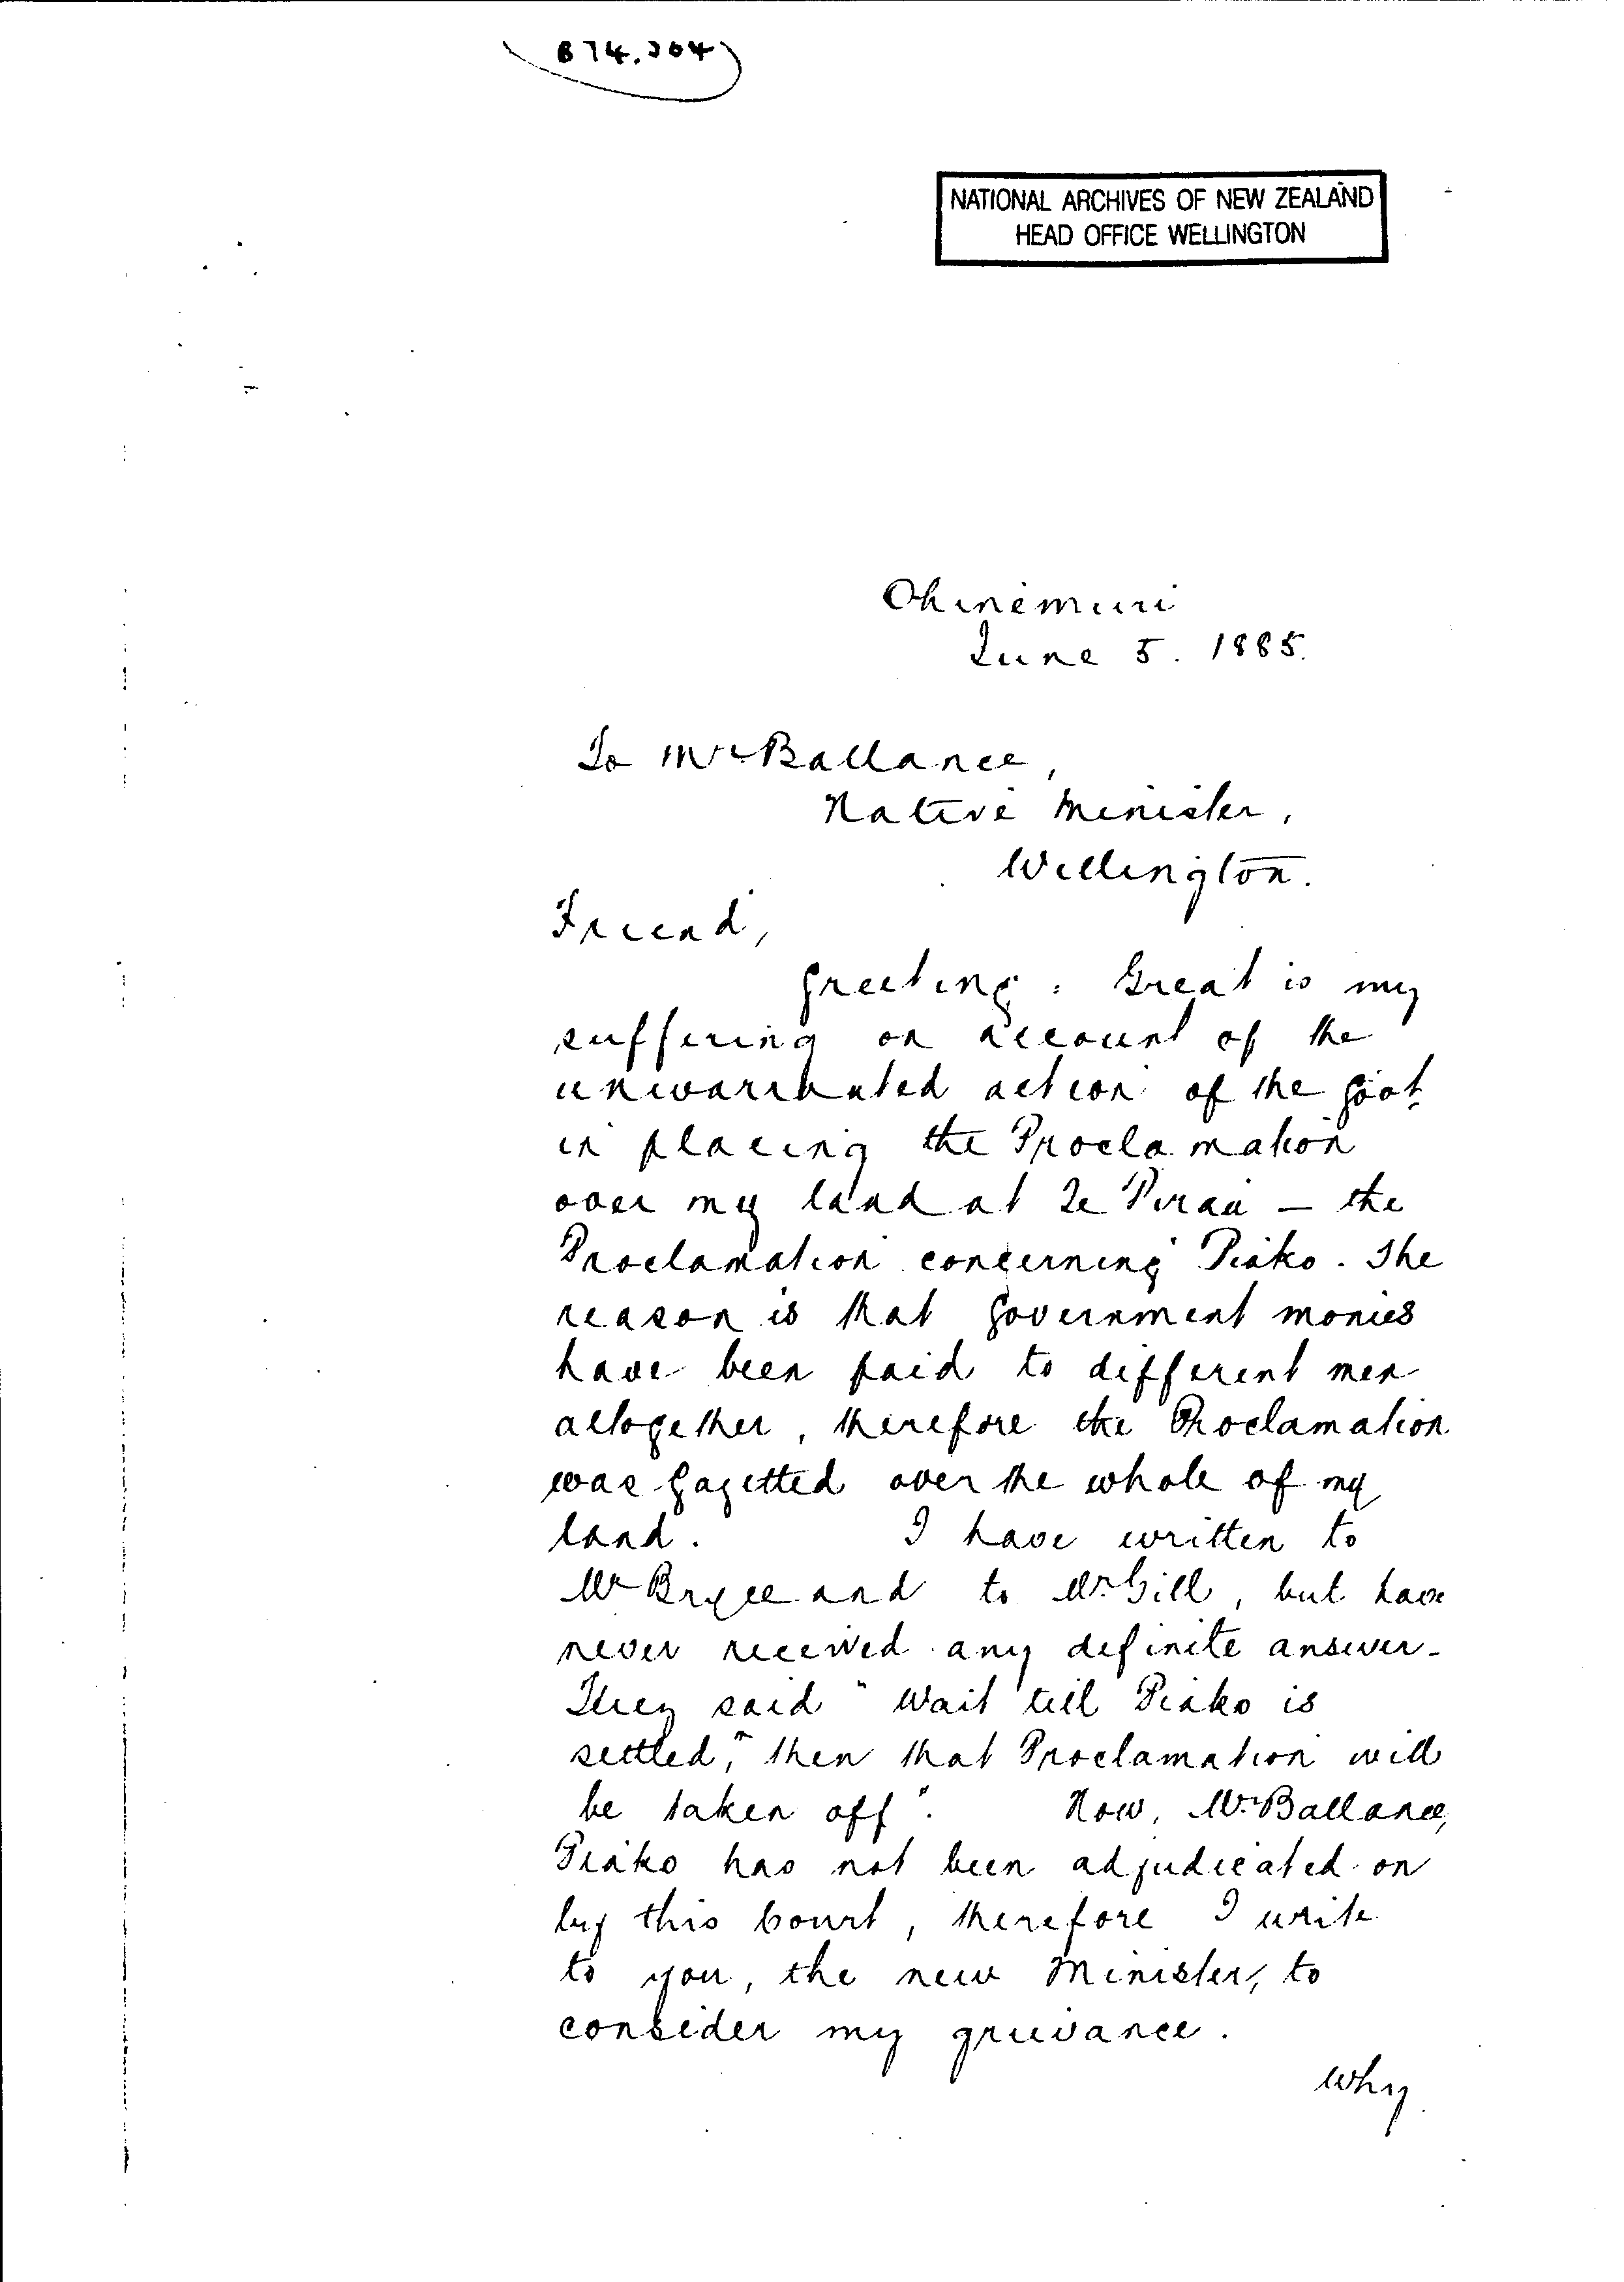 874.304
NATIONAL ARCHIVES OF NEW ZEALAND
HEAD OFFICE WELLINGTON
Ohinemuri
June 5. 1885.
To Mr Ballance,
Native Minister,
Wellington.
Friend,
Greeting. Great is my
suffering on account of the
unwarranted action of the Govt
in placing the Proclamation
over my land at Te Purau – the
Proclamation concerning Piako. The
reason is that Government monies
have been paid to different men
altogether, therefore the Proclamation
was gazetted over the whole of my
land. I have written to
Mr Bryce and to Mr Gill, but have
never received any definite answer –
They said "Wait till Piako is
settled," then that Proclamation will
be taken off". Now, Mr Ballance,
Piako has not been adjudicated on
by this Court, therefore I write
to you, the new Minister, to
consider my grievance.
Why